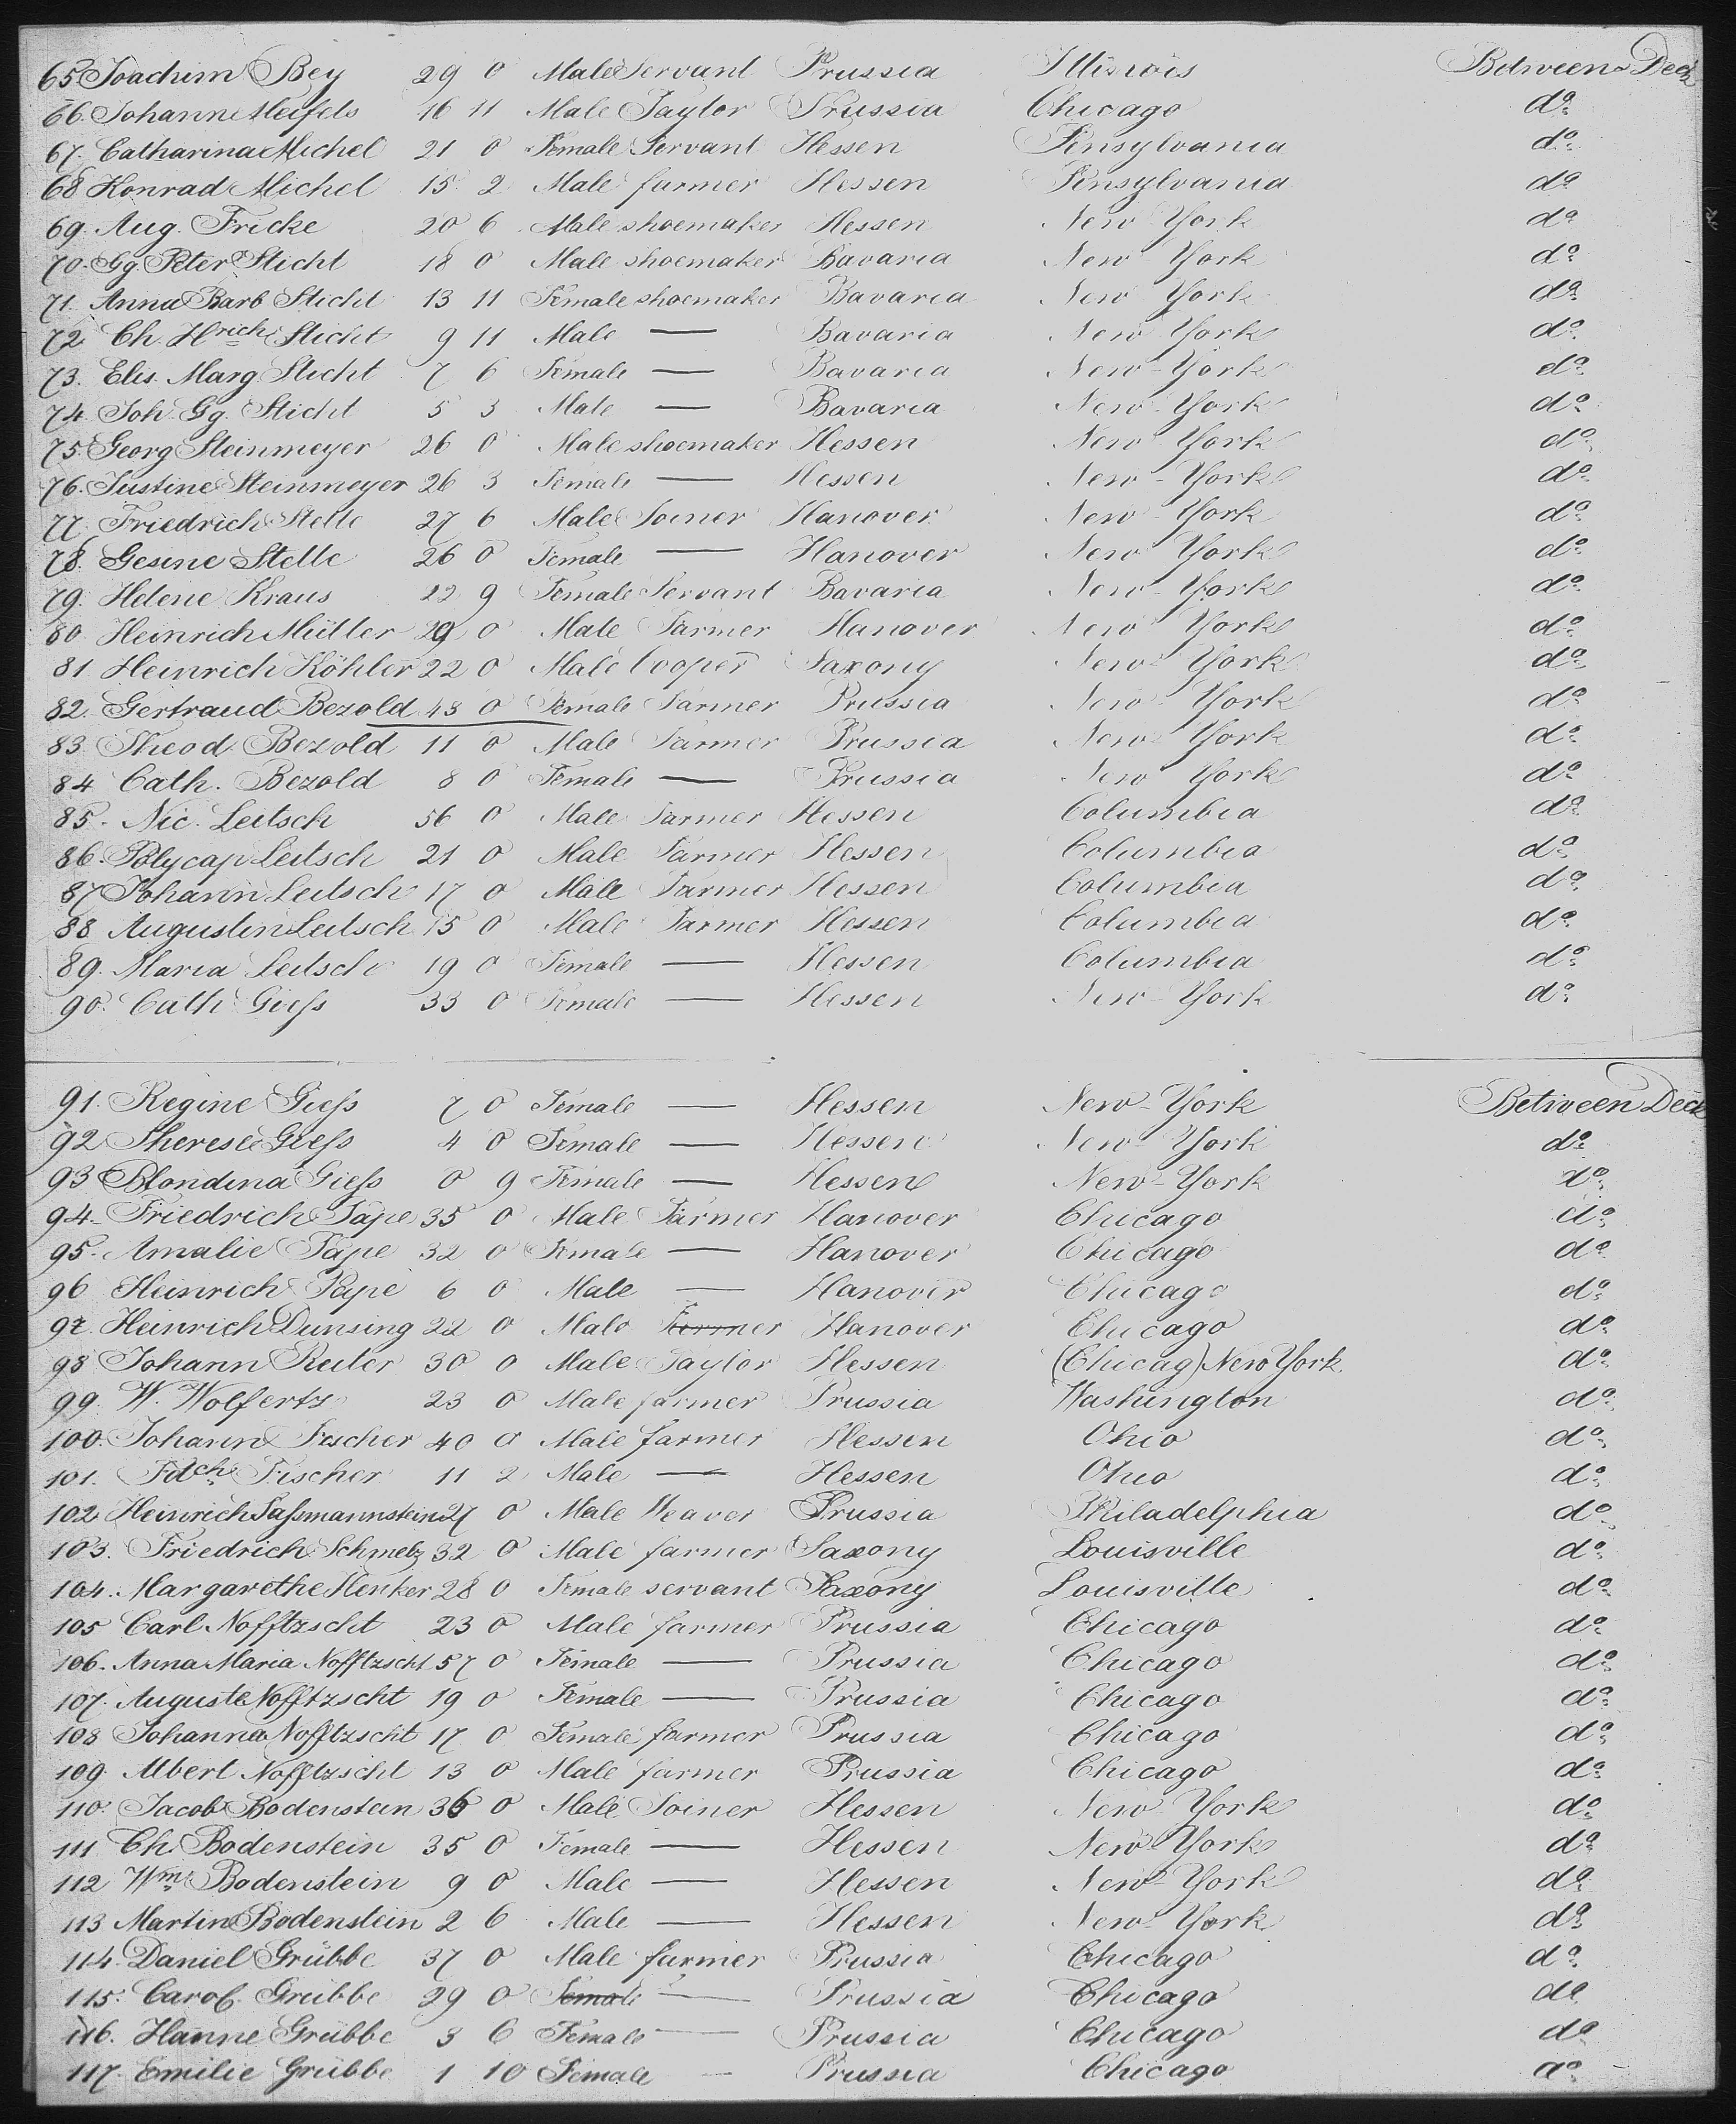 65. Joachim Bey 29 0 Male Servant Prussia Illinois Between Deck
66. Johann Meifels 16 11 Male Taylor Prussia Chicago do
67. Catharina Michel 21 0 Female Servant Hessen Pensylvania do
68 Konrad Michel 15 2 Male farmer Hessen Pensylvania do
69. Aug. Fricke 20 6 Male shoemaker Hessen New York do
70. Gg. Peter Sticht 18 0 Male shoemaker Bavaria New York do
71. Anna Barb Sticht 13 11 Female shoemaker Bavaria New York do
72 Ch. Hrich Sticht 9 11 Male — Bavaria New York do
73. Elis. Marg. Sticht 7 6 Female — Bavaria New-York do
74. Joh. Gg. Sticht 5 3 Male — Bavaria New-York do
75. Georg Steinmeyer 26 0 Male shoemaker Hessen New York do
76. Justine Steinmeyer 26 3 Female — Hessen New-York do
77. Friedrich Stelle 27 6 Male Joiner Hanover New York do
78. Gesine Stelle 26 0 Female — Hanover New York do
79. Helene Kraus 22 9 Female Servant Bavaria New-York do
80 Heinrich Müller 29 0 Male Farmer Hanover New York do
81 Heinrich Köhler 22 0 Male Cooper Saxony New York do
82. Gertraud Bezold 48 0 Female Farmer Prussia New York do
83. Theod. Bezold 11 0 Male Farmer Prussia New York do
84 Cath. Bezold 8 0 Female — Prussia New York do
85. Nic. Leitsch 56 0 Male Farmer Hessen Columbia do
86. Polycap Leitsch 21 0 Male Farmer Hessen Columbia do
87 Johann Leitsch 17 0 Male Farmer Hessen Columbia do
88 Augustin Leitsch 15 0 Male Farmer Hessen Columbia do
89. Maria Leitsch 19 0 Female — Hessen Columbia do
90. Cath. Giess 33 0 Female — Hessen New-York do
91. Regine Giess 7 0 Female — Hessen New-York Between Deck
92 Therese Giess 4 0 Female — Hessen New York do
93 Blondina Giess 0 9 Female — Hessen New-York do
94. Friedrich Pape 35 0 Male Farmer Hanover Chicago do
95. Amalie Pape 32 0 Female — Hanover Chicago do
96 Heinrich Pape 6 0 Male — Hanover Chicago do
97. Heinrich Dunsing 22 0 Male Farmer Hanover Chicago do
98 Johann Reuter 30 0 Male Taylor Hessen (Chicag) New York do
99. W. Wolfertz 23 0 Male farmer Prussia Washington do
100. Johann Fischer 40 0 Male farmer Hessen Ohio do
101. Fdch Fischer 11 2 Male — Hessen Ohio do
102 Heinrich Sassmannstein 27 0 Male Weaver Prussia Philadelphia do
103. Friedrich Schmelz 32 0 Male farmer Saxony Louisville do
104. Margarethe Henker 28 0 Female servant Saxony Louisville do
105 Carl Nofftzscht 23 0 Male farmer Prussia Chicago do
106. Anna Maria Nofftzscht 57 0 Female — Prussia Chicago do
107. Auguste Nofftzscht 19 0 Female — Prussia Chicago do
108 Johanna Nofftzscht 17 0 Female farmer Prussia Chicago do
109. Albert Nofftzscht 13 0 Male farmer Prussia Chicago do
110. Jacob Bodenstein 36 0 Male Joiner Hessen New York do
111 Ch. Bodenstein 35 0 Female — Hessen New York do
112 Wm Bodenstein 9 0 Male — Hessen New-York do
113 Martin Bodenstein 2 6 Male — Hessen New York do
114. Daniel Grübbe 37 0 Male farmer Prussia Chicago do
115. Carol. Grübbe 29 0 Female — Prussia Chicago do
116. Hanne Grübbe 3 6 Female — Prussia Chicago do
117. Emilie Grübbe 1 10 Female — Prussia Chicago do